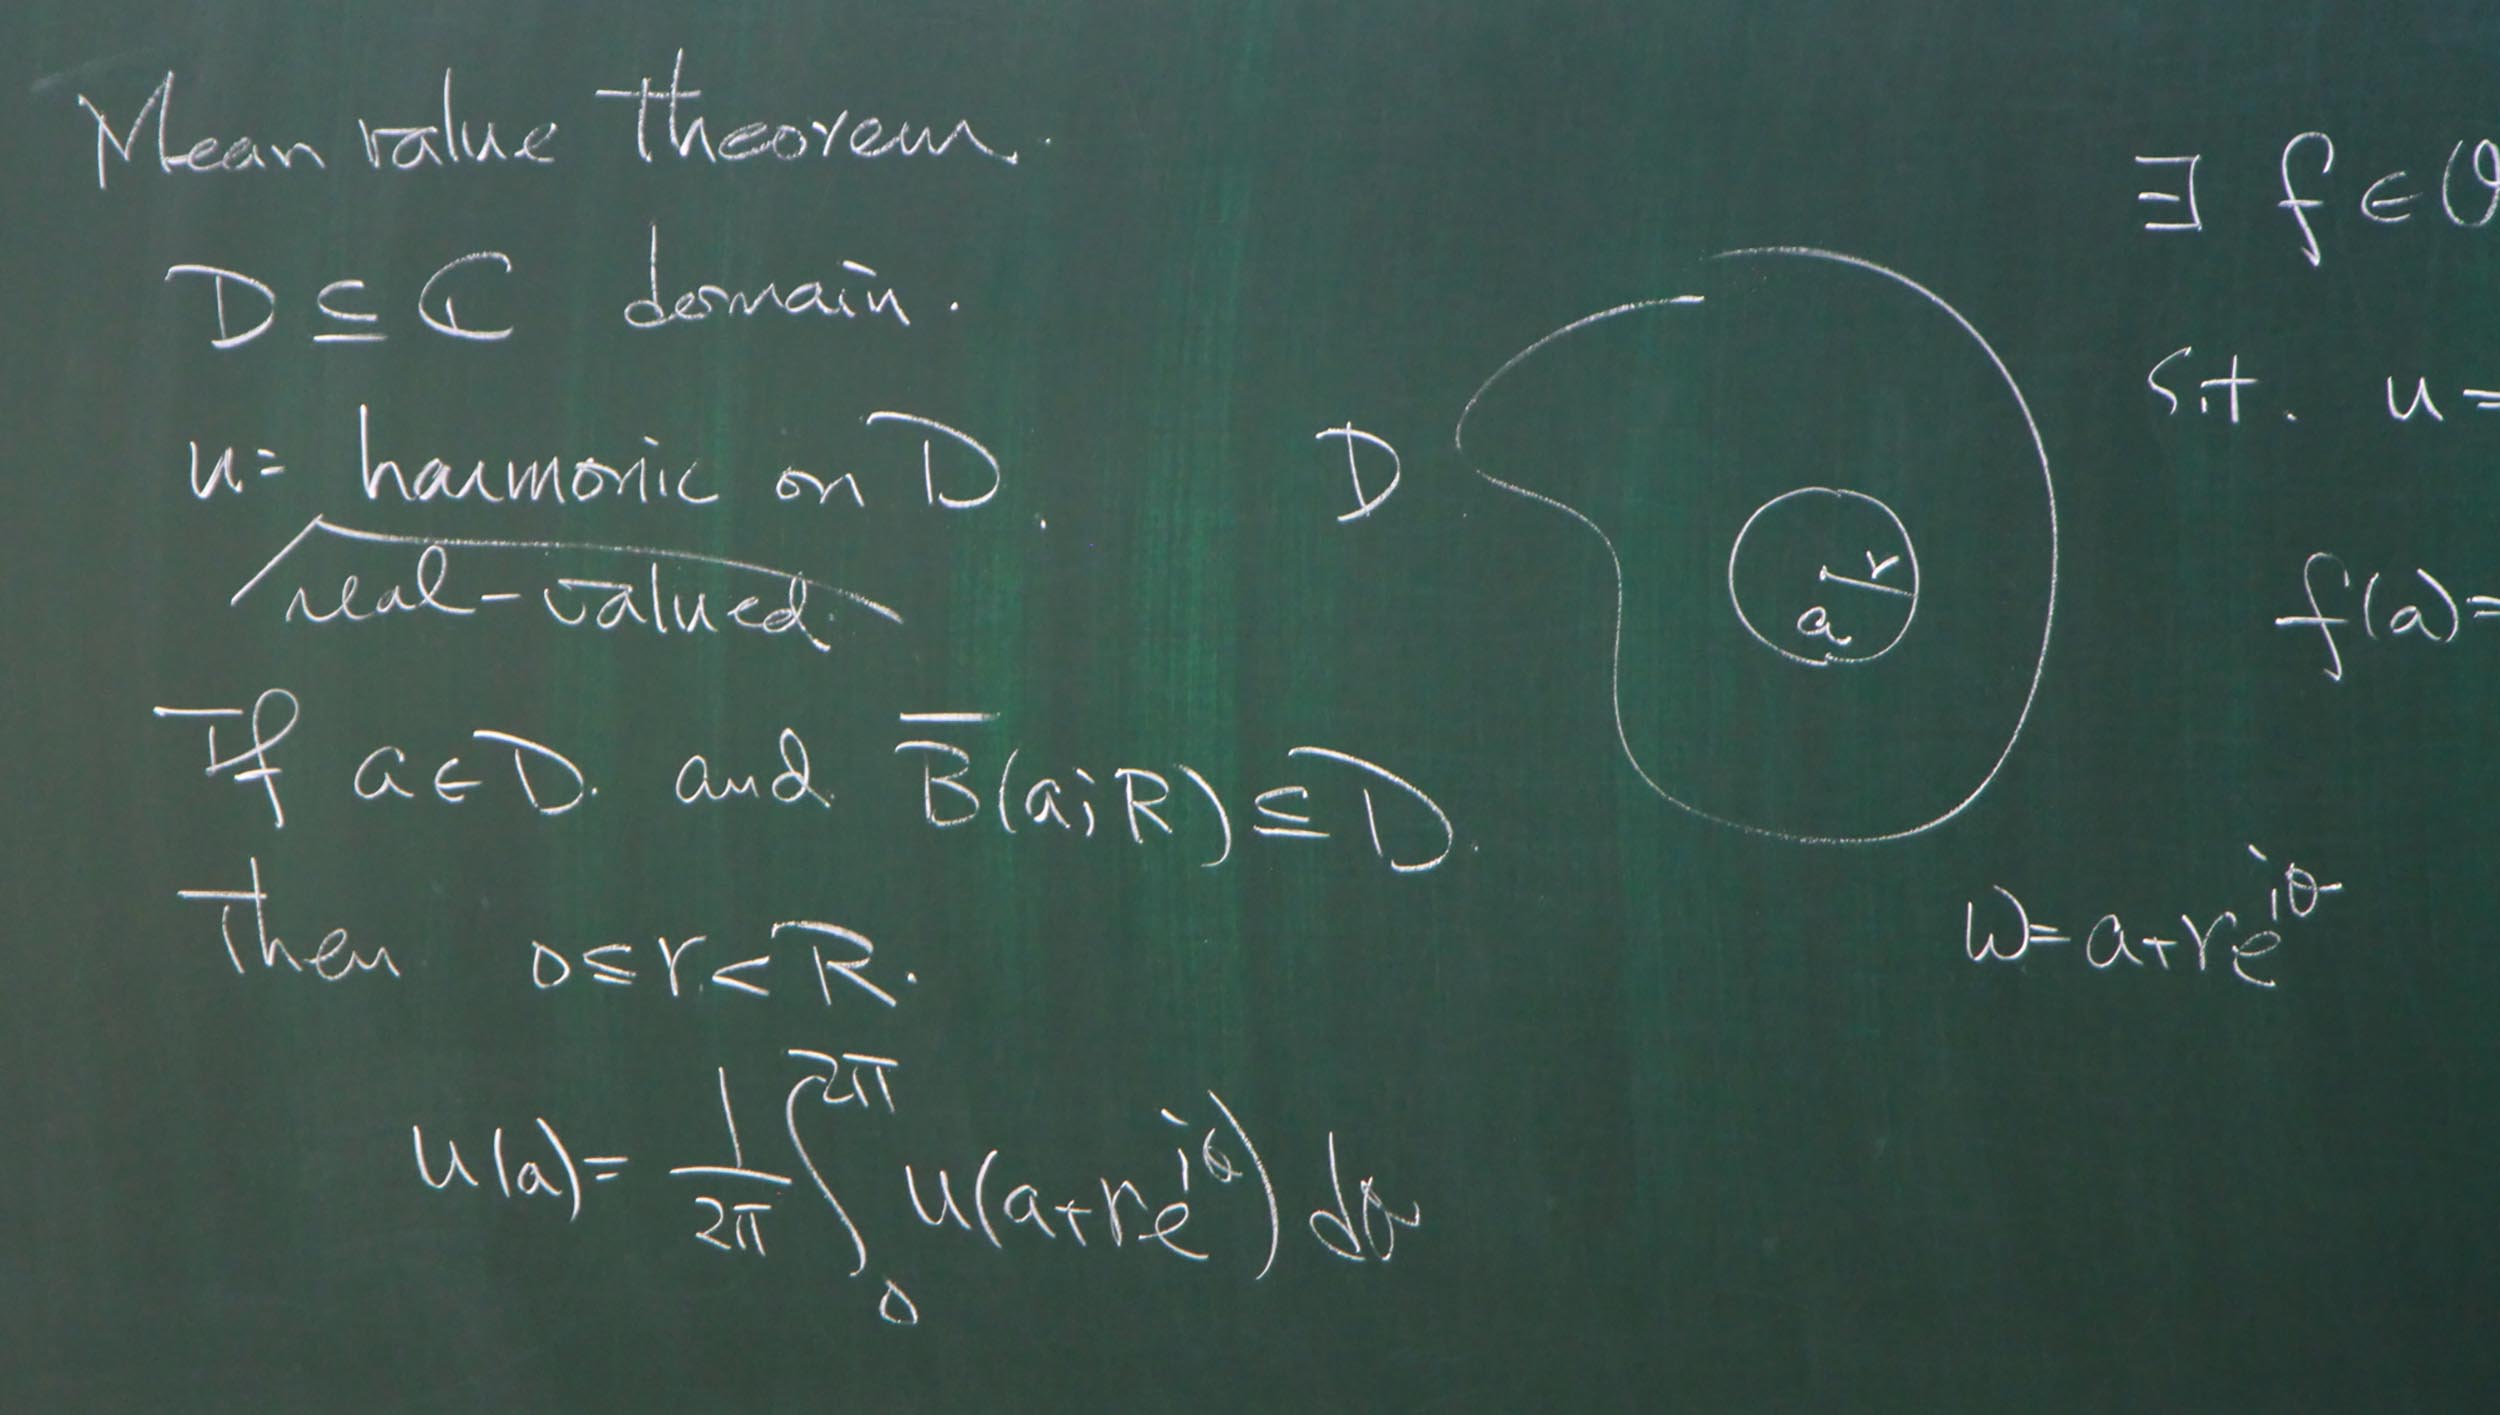 Mean value theorem.
D ⊆ ℂ domain.
u = harmonic on D.
real-valued
If a ∈ D. and B̅(a; R) ⊆ D.
Then 0 ≤ r < R.
u(a) = 1/2π ∫₀^{2π} u(a+re^{iθ}) dθ
D
r
a
w = a+re^{iθ}
∃ f ∈ O
s.t. u =
f(a) =